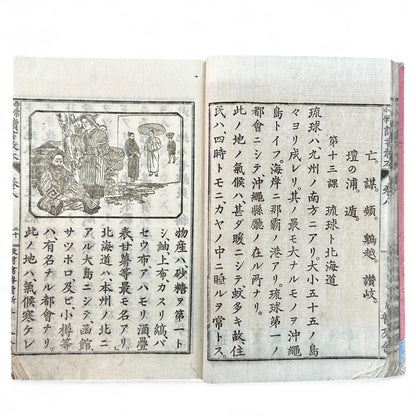 亡。謀。頻。鵯越。讃岐。
壇の浦。遁。
第十三課 琉球ト北海道
琉球ハ九州ノ南方ニアリ。大小五十五ノ島
々ヨリ成レリ。其ノ最モ大ナルモノヲ沖繩
島トイフ。海岸ニ那覇ノ港アリ。琉球第一ノ
都會ニシテ沖繩縣廳ノ在ル所ナリ。
此ノ地ノ氣候ハ甚ダ暖ニシテ蚊多キ故住
民ハ四時トモニカヤノ中ニ睡ルヲ常トス。
物産ハ砂糖ヲ第一ト
シ紬上布カスリ縞バ
セウ布アハモリ酒疊
表甘藷等最モ名アリ。
北海道ハ本州ノ北ニ
アル大島ニシテ函館
サツポロ及ビ小樽等
ハ有名ナル都會ナリ。
此ノ地ハ氣候寒ケレ